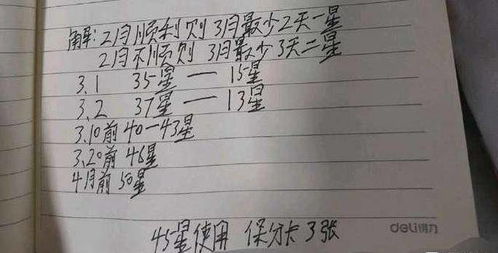 解: 2月顺利则3月最少2天一星
2月不顺则3月最少3天二星
3.1 35星 — 15星
3.2 37星 — 13星
3.10前 40-43星
3.20前 46星
4月前 50星
45星使用 保分卡3张
deli得力